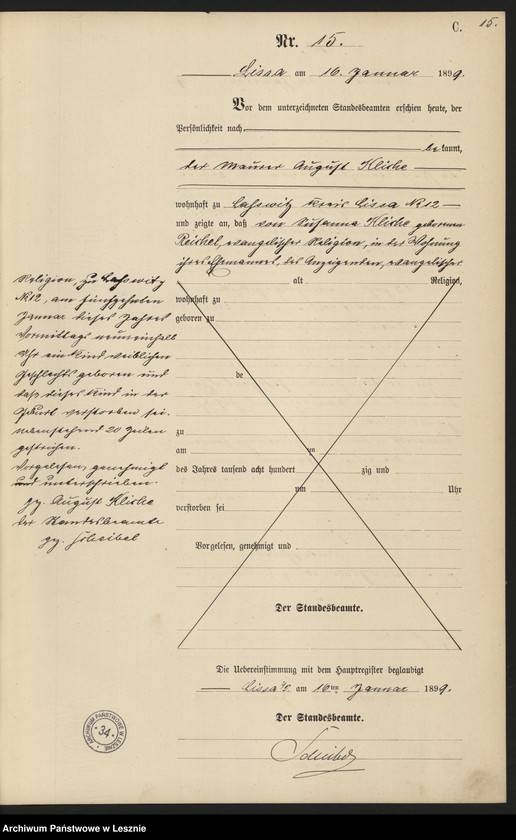 C. 15.
Nr. 15.
Lissa am 16. Januar 1899.
Vor dem unterzeichneten Standesbeamten erschien heute, der
Persönlichkeit nach
bekannt,
der Maurer August Klische
wohnhaft zu Laßwitz Kreis Lissa No 12
und zeigte an, daß von Susanna Klische geborenen
Reichel, evangelischer Religion, in der Wohnung
ihres Ehemannes, des Anzeigenden, evangelischer
alt Religion,
Religion, zu Laßwitz
No 12, am fünfzehnten
Januar dieses Jahres
Vormittags neuneinhalb
Uhr ein Kind weiblichen
Geschlechts geboren und
daß dieses Kind in der
Geburt verstorben sei.
nebenstehend 20 Zeilen
gestrichen.
Vorgelesen, genehmigt
und unterschrieben.
gz. August Klische
der Standesbeamte
gz. Scheibel
wohnhaft zu
geboren zu
de
zu
am um
des Jahres tausend acht hundert zig und
um Uhr
verstorben sei
Vorgelesen, genehmigt und
Der Standesbeamte.
Die Uebereinstimmung mit dem Hauptregister beglaubigt
Lissa am 16ten Januar 1899.
Der Standesbeamte.
Scheibel
ARCHIWUM PAŃSTWOWE W LESZNIE
34
Archiwum Państwowe w Lesznie